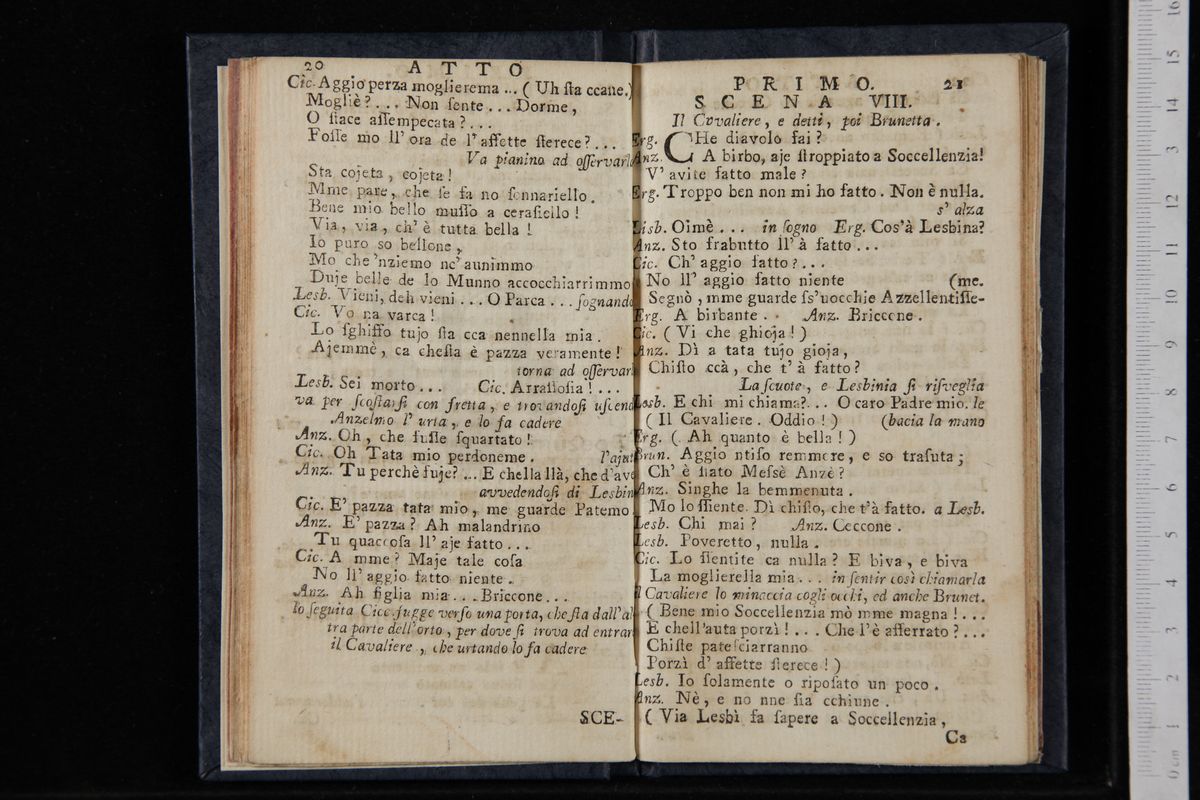 20 ATTO
Cic. Aggio perza moglierema ... ( Uh ſta ccane.)
Mogliè? ... Non ſente ... Dorme,
O ſtace aſſempecata? ...
Foſſe mo ll' ora de l' affette ſterece? ...
Va pianino ad oſſervarl
Sta cojeta, cojeta!
Mme pare, che ſe fa no ſonnariello.
Bene mio bello muſſo a ceraſiello!
Via, via, ch' è tutta bella!
Io puro so bellone,
Mo che 'nziemo nc' aunimmo
Duje belle de lo Munno accocchiarrimmo
Lesb. Vieni, deh vieni ... O Parca ... ſognando
Cic. Vo na varca!
Lo ſghiffo tujo ſta cca nennella mia.
Ajemmè, ca cheſta è pazza veramente!
torna ad oſſervarl
Lesb. Sei morto ... Cic. Arraſſoſia! ...
va per ſcoſtarſi con fretta, e trovandoſi uſcend
Anzelmo l' urta, e lo fa cadere
Anz. Oh, che fuſſe ſquartato!
Cic. Oh Tata mio perdoneme. l'ajut
Anz. Tu perchè fuje? ... E chella llà, che d'ave
avvedendoſi di Lesbin
Cic. E' pazza tata mio, me guarde Patemo
Anz. E' pazza? Ah malandrino
Tu quaccoſa ll' aje fatto ...
Cic. A mme? Maje tale coſa
No ll' aggio fatto niente.
Anz. Ah figlia mia ... Briccone ...
lo ſeguita Cicc. fugge verſo una porta, che ſta dall' al
tra parte dell' orto, per dove ſi trova ad entrar
il Cavaliere, che urtando lo fa cadere
SCE-
PRIMO. 21
SCENA VIII.
Il Cavaliere, e detti, poi Brunetta.
Erg. CHe diavolo fai?
Anz. A birbo, aje ſtroppiato a Soccellenzia!
V' avite fatto male?
Erg. Troppo ben non mi ho fatto. Non è nulla.
s' alza
Lisb. Oimè ... in ſogno Erg. Cos'à Lesbina?
Anz. Sto frabutto ll' à fatto ...
Cic. Ch' aggio fatto? ...
No ll' aggio fatto niente (me.
Segnò, mme guarde ſs'uocchie Azzellentiſſe-
Erg. A birbante. Anz. Briccone.
Cic. ( Vi che ghioja! )
Anz. Dì a tata tujo gioja,
Chiſto ccà, che t' à fatto?
La ſcuote, e Lesbinia ſi riſveglia
Lesb. E chi mi chiama? ... O caro Padre mio. le
( Il Cavaliere. Oddio! ) (bacia la mano
Erg. ( Ah quanto è bella! )
Brun. Aggio ntiſo remmore, e so traſuta;
Ch' è ſtato Meſsè Anzè?
Anz. Singhe la bemmenuta.
Mo lo ſſiente. Dì chiſto, che t'à fatto. a Lesb.
Lesb. Chi mai? Anz. Ceccone.
Lesb. Poveretto, nulla.
Cic. Lo ſientite ca nulla? E biva, e biva
La moglierella mia ... in ſentir così chiamarla
il Cavaliere lo minaccia cogli occhi, ed anche Brunet.
( Bene mio Soccellenzia mò mme magna! ...
E chell'auta porzì! ... Che l'è afferrato? ...
Chiſte pateſciarranno
Porzì d' affette ſterece! )
Lesb. Io ſolamente o ripoſato un poco.
Anz. Nè, e no nne ſia cchiune.
( Via Lesbì fa ſapere a Soccellenzia,
Ca